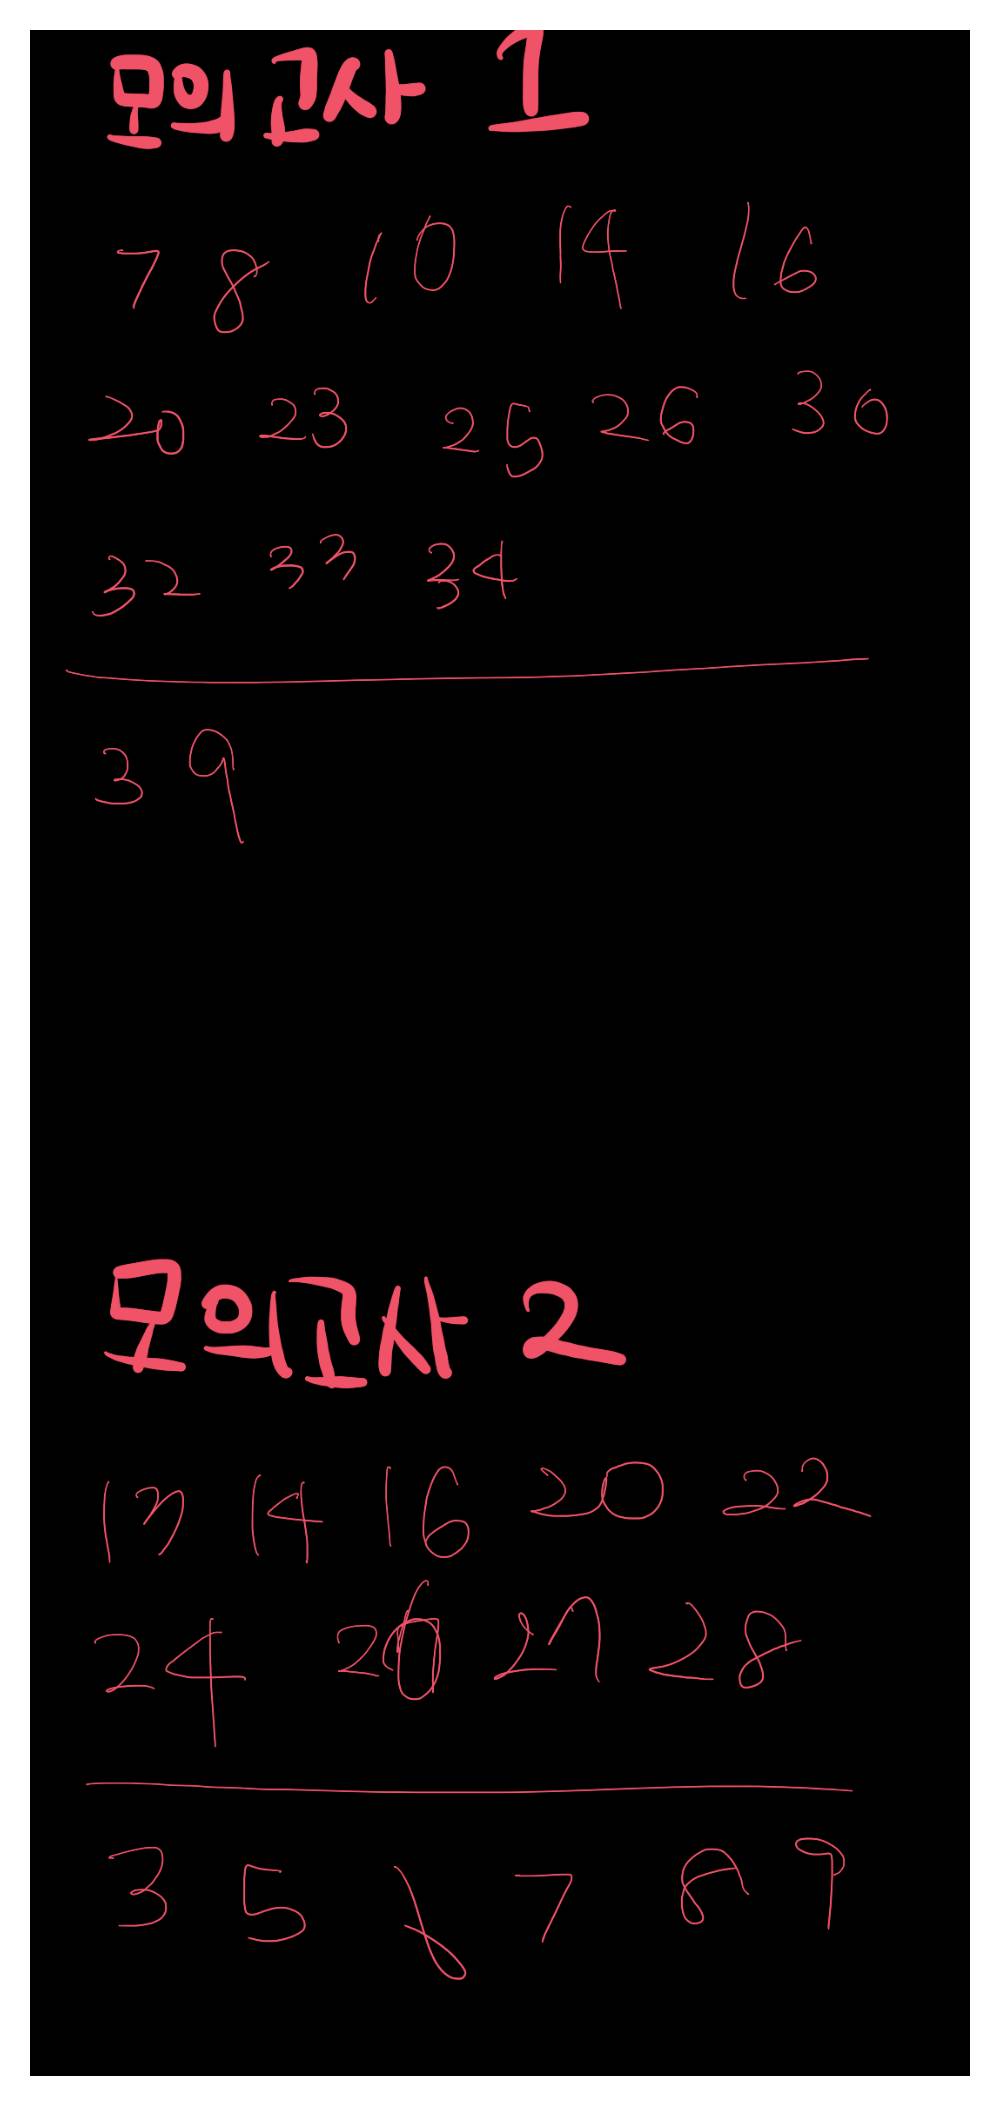 모의고사 1
7 8 10 14 16
20 23 25 26 30
32 33 34
3 9
모의고사 2
13 14 16 20 22
24 26 27 28
3 5 6 7 8 9